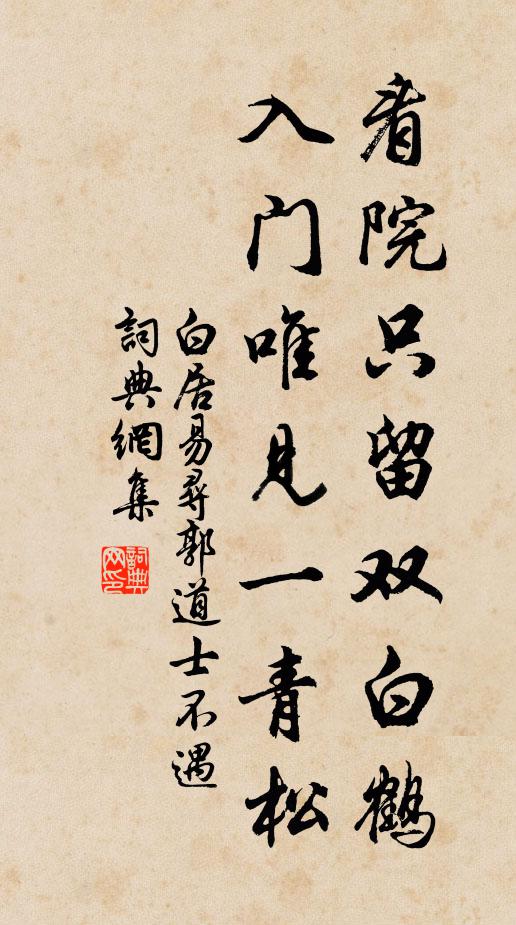 看院只留双白鹤
入门唯见一青松
白居易寻郭道士不遇
詞典網集
詞典网印